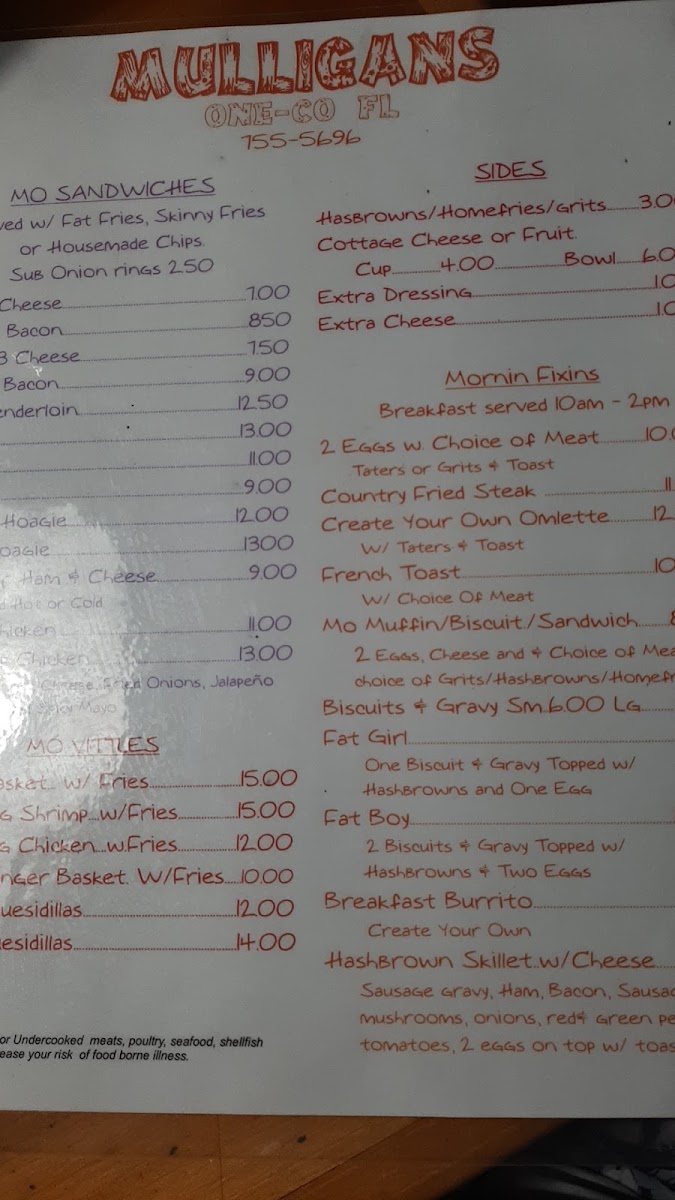 MULLIGANS
ONE-CO FL
755-5696
MO SANDWICHES
w/ Fat Fries, Skinny Fries
or Housemade Chips.
Sub Onion rings 2.50
Cheese 7.00
Bacon 8.50
3 Cheese 7.50
Bacon 9.00
12.50
13.00
11.00
9.00
Hoagie 12.00
13.00
Ham & Cheese 9.00
Hot or Cold
11.00
Chicken 13.00
Cheese, Fried Onions, Jalapeño
Mayo
MO VITTLES
w/ Fries 15.00
Shrimp w/Fries 15.00
Chicken w.Fries 12.00
Basket. W/Fries 10.00
12.00
14.00
or Undercooked meats, poultry, seafood, shellfish
your risk of food borne illness.
SIDES
Hasbrowns/Homefries/Grits 3.0
Cottage Cheese or Fruit.
Cup 4.00 Bowl 6.0
Extra Dressing 1.0
Extra Cheese 1.0
Mornin Fixins
Breakfast served 10am - 2pm
2 Eggs w. Choice of Meat 10.
Taters or Grits & Toast
Country Fried Steak 11
Create Your Own Omlette 12
W/ Taters & Toast
French Toast 10
W/ Choice Of Meat
Mo Muffin/Biscuit/Sandwich
2 Eggs, Cheese and & Choice of
choice of Grits/Hashbrowns/
Biscuits & Gravy Sm. 6.00 LG
Fat Girl
One Biscuit & Gravy Topped w/
Hashbrowns and One Egg
Fat Boy
2 Biscuits & Gravy Topped w/
HashBrowns & Two Eggs
Breakfast Burrito
Create Your Own
HashBrown Skillet w/Cheese
Sausage Gravy, Ham, Bacon,
mushrooms, onions, red& Green
tomatoes, 2 eggs on top w/